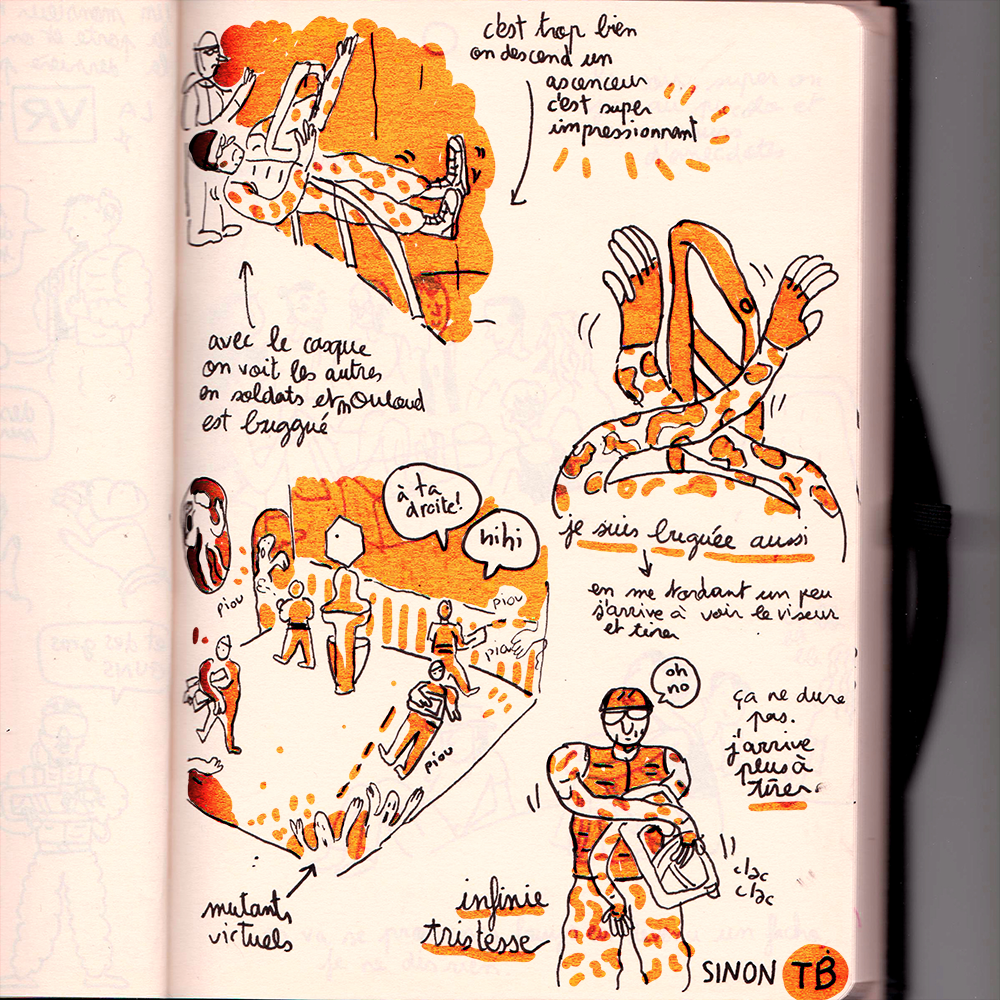 c'est trop bien
on descend un
ascenceur
c'est super
impressionnant
avec le casque
on voit les autres
en soldats et Mouloud
est buggué
je suis buguée aussi
en me tordant un peu
j'arrive à voir le viseur
et tirer
à ta
droite!
hihi
piou
piou
piou
piou
mutants
virtuels
oh
no
ça ne dure
pas.
j'arrive
plus à
tirer.
clac
clac
infinie
tristesse
SINON TB
VR